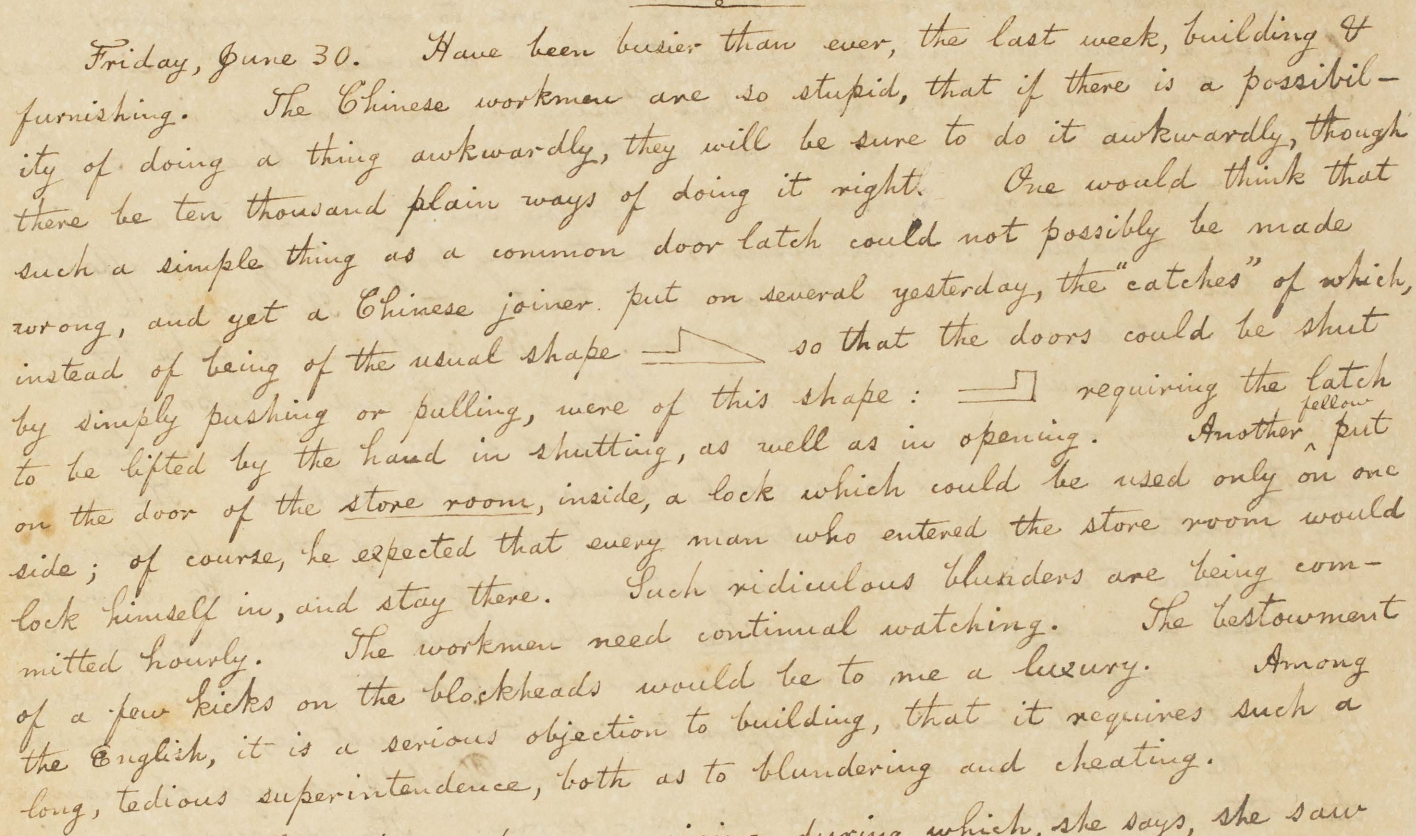 Friday, June 30. Have been busier than ever, the last week, building &
furnishing. The Chinese workmen are so stupid, that if there is a possibil-
ity of doing a thing awkwardly, they will be sure to do it awkwardly, though
there be ten thousand plain ways of doing it right. One would think that
such a simple thing as a common door latch could not possibly be made
wrong, and yet a Chinese joiner put on several yesterday, the "catches" of which,
instead of being of the usual shape so that the doors could be shut
by simply pushing or pulling, were of this shape : requiring the latch
to be lifted by the hand in shutting, as well as in opening. Another ^ fellow put
on the door of the store room, inside, a lock which could be used only on one
side ; of course, he expected that every man who entered the store room would
lock himself in, and stay there. Such ridiculous blunders are being com-
mitted hourly. The workmen need continual watching. The bestowment
of a few kicks on the blockheads would be to me a luxury. Among
the English, it is a serious objection to building, that it requires such a
long, tedious superintendence, both as to blundering and cheating.
during which, she says, she saw